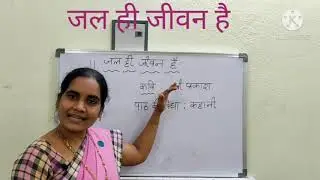 जल ही जीवन है
जल ही जीवन है
कवि प्रकाश
पाठ की विधा : कहानी